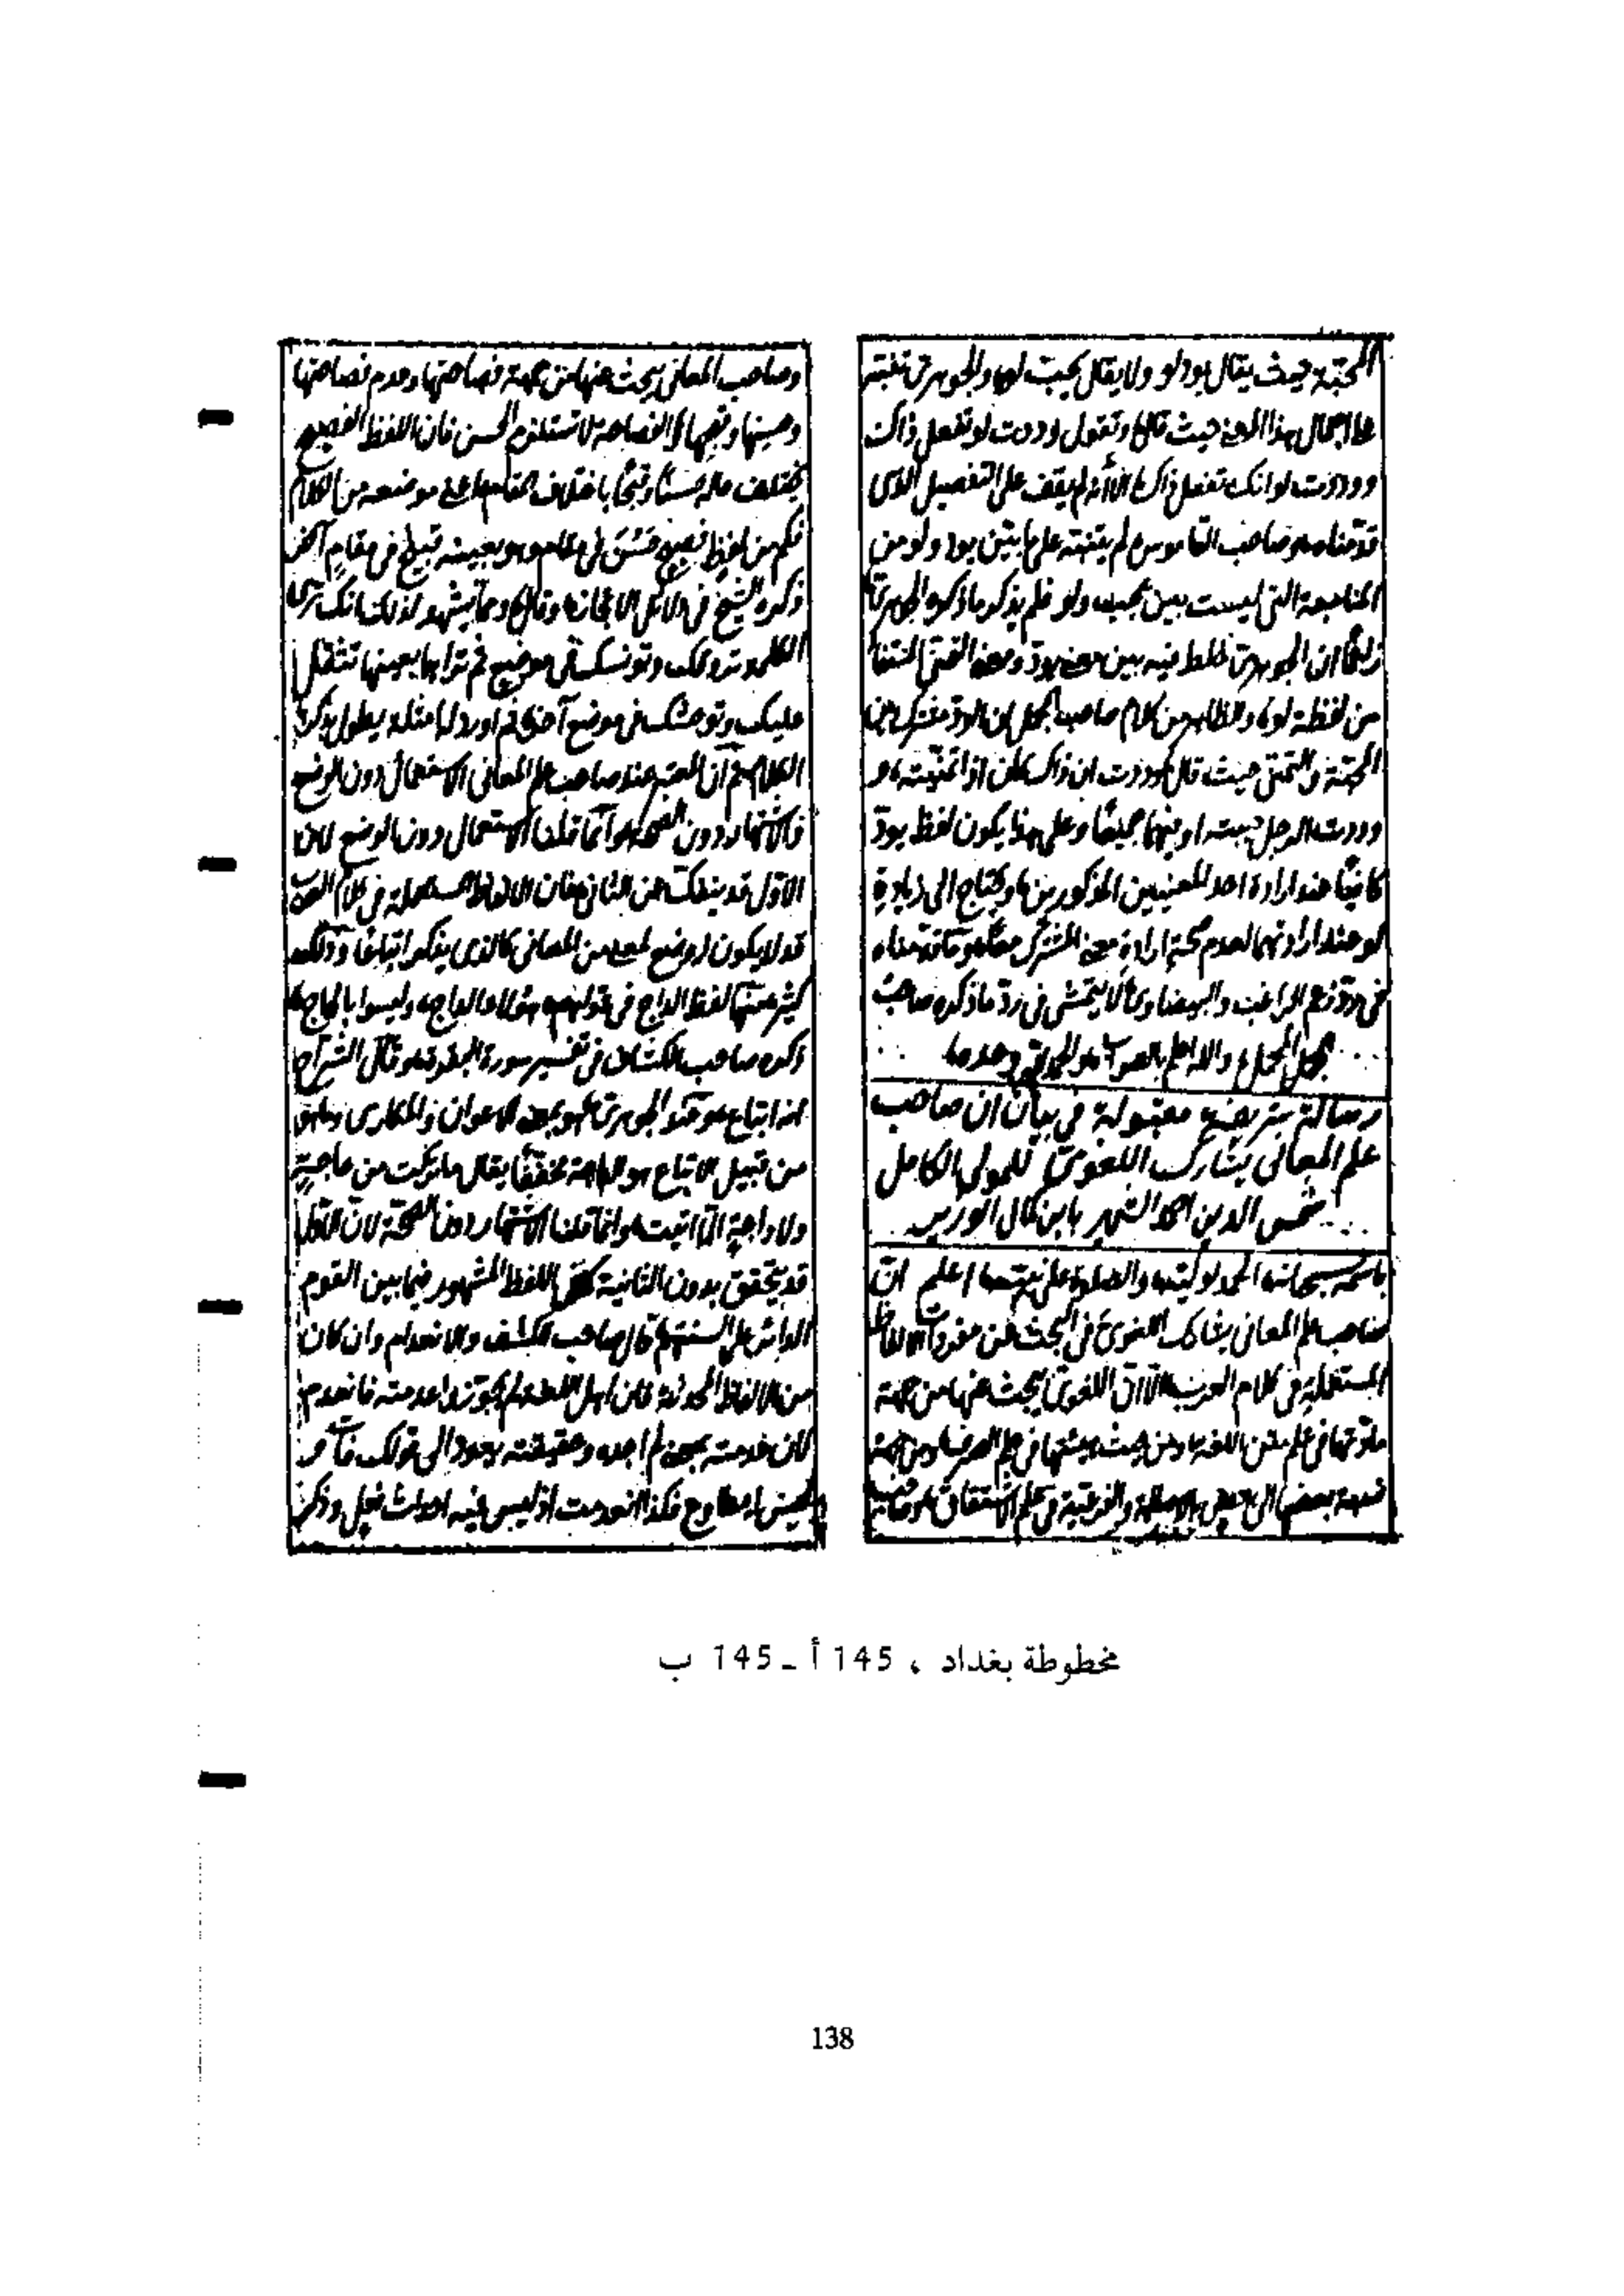 المحبة حيث يقال يود لو ولا يقال يحب لو والجوهري تنبه
على اجمال هذا المعنى حيث قال وتقول وددت لو تفعل ذاك
ووددت لو انك تفعل ذاك الا أنه لم يقف على التفصيل الذي
قدمناه وصاحب القاموس لم يتنبه على ما بين يود ولو من
المناسبة التي ليست بين يحب ولو فلم يذكر ما ذكره الجوهري
زاعما ان الجوهري خلط فيه بين معنى يود ومعنى التمني المستفاد
من لفظة لو والظاهر من كلام صاحب المجمل ان الود مشترك بين
المحبة والتمني حيث قال وددت ان ذاك كان اذا تمنيته و
وددت الرجل احببته او فيهما جميعا وعلى هذا يكون لفظ يود
كافيا عند ارادة احد المعنيين المذكورين ويحتاج الى زيادة
لو عند ارادتهما لعدم صحة ارادة معنى المشترك معا وما قدمناه
في رد زعم الراغب والبيضاوي لا يتمشى في رد ما ذكره صاحب
مجمل والله اعلم بالصواب والحمد لله وحده
رسالة شريفة مقبولة في بيان ان صاحب
علم المعاني يشارك اللغوي للمولى الكامل
شمس الدين احمد الشهير بابن كمال الوزير
باسمه سبحانه الحمد لوليه والصلوة على نبيه اعلم ان
صاحب علم المعاني يشارك اللغوي في البحث عن مفردات الالفاظ
المستعملة في كلام العرب الا ان اللغوي يبحث عنها من جهة
مادتها في علم متن اللغة ومن حيث هيئتها في علم الصرف ومن جهة
نسبة بعضها الى بعض بالاصالة والفرعية في علم الاشتقاق
وصاحب المعاني يبحث عنها من جهة فصاحتها وعدم فصاحتها
وحسنها وقبحها والفصاحة لا تستلزم الحسن فان اللفظ الفصيح
يختلف حاله حسنا وقبحا باختلاف موضعه من الكلام
فكم من لفظ فصيح حسن في مقام وهو بعينه قبيح في مقام آخر
ذكره الشيخ في دلائل الاعجاز وقال ومما يشهد لذلك انك ترى
الكلمة تروقك وتونسك في موضع ثم تراها بعينها تثقل
عليك وتوحشك في موضع آخر ثم اورد لها امثلة يطول بذكرها
الكلام ثم ان المعتبر عند صاحب علم المعاني الاستعمال دون الوضع
والاشتهار دون الصحة وانما قلنا الاستعمال دون الوضع لان
الاول قد ينفك عن الثاني فان الالفاظ المستعملة في كلام العرب
قد لا يكون له وضع لمعنى من المعاني كالذي يذكر اتباعا وذلك
كثير منها لفظ الداج في قولهم هؤلاء الداج وليسوا بالحاج
ذكره صاحب الكشاف في تفسير سورة البقرة وقال الشراح
انه اتباع وعند الجوهري هو بمعنى الاعوان والمكاري وما هو
من قبيل الاتباع هو الداجة مخففا يقال ما تركت من حاجة
ولا داجة الا اتيت وانما قلنا الاشتهار دون الصحة لان الاول
قد يتحقق بدون الثانية كما في اللفظ المشهور فيما بين القوم
الدائر على السنتهم قال صاحب الكشف والانعدام وان كان
من الالفاظ المحدثة فان اهل اللغة لم يجوزوا عدمته فانعدم
لان عدمته بمعنى لم اجده وحقيقته يعود الى قولك فات و
ليس له مطاوع فكذا انعدمت اذ ليس فيه احداث فعل وذكر
مخطوطة بغداد ، 145 أ ـ 145 ب
138